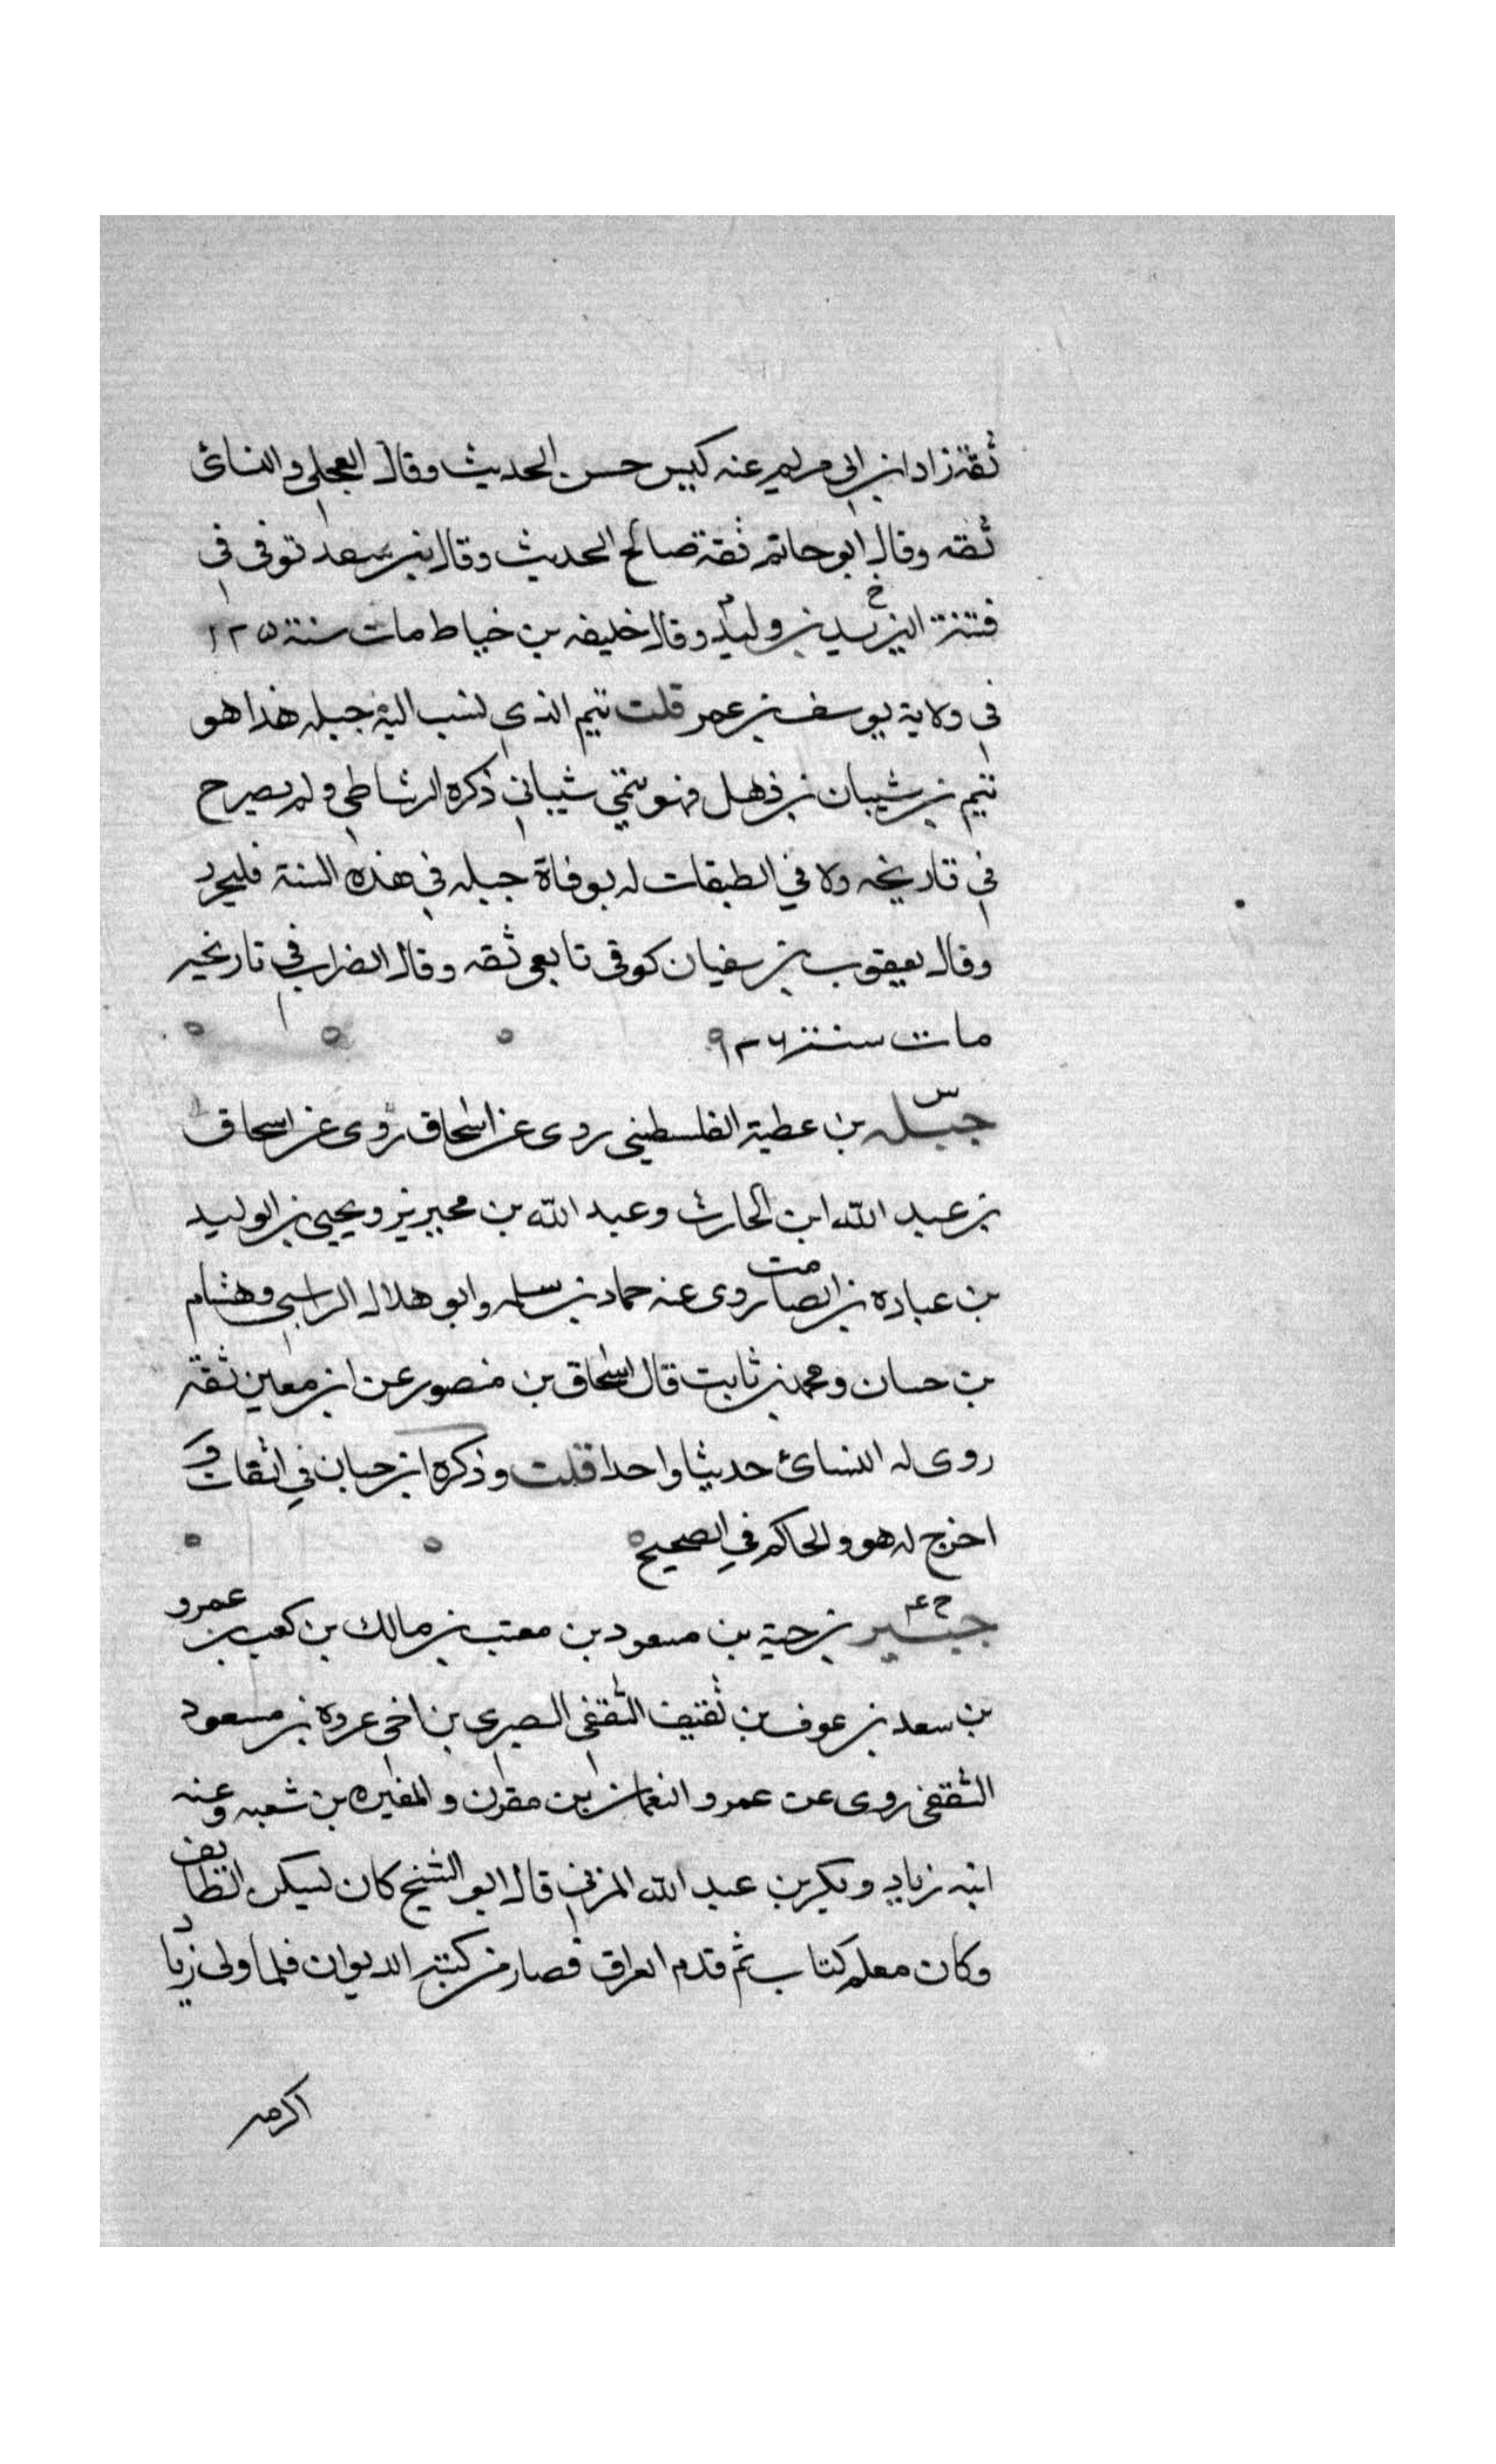 ثقة زاد ابن ابي مريم عنه كيس حسن الحديث وقال العجلي والنسائ
ثقه وقال ابو حاتم ثقة صالح الحديث وقال بن سعد توفى في
فتنة اليزيد بن وليد وقال خليفه بن خياط مات سنة ١٢٥
في ولاية يوسف بن عمر قلت تيم الذي نسب اليه جبله هذا هو
تيم بن شيبان بن ذهل فهو تيمي شيباني ذكره الرشاطي ولم يصرح
في تاريخه ولا في الطبقات له بوفاة جبله في هذه السنة فليحرد
وقال يعقوب بن سفيان كوفي تابعي ثقه وقال الضراب في تاريخه
مات سنة
س
جبله بن عطية الفلسطيني روى عن اسحاق روى عن اسحاق
بن عبد الله ابن الحارث وعبد الله بن محيريز ويحيى بن الوليد
بن عباده بن الصامت روى عنه حماد بن سلمه وابو هلال الراسبي وهشام
بن حسان ومحمد بن ثابت قال اسحاق بن منصور عن ابن معين ثقة
روى له النسائ حديثا واحدا قلت وذكره ابن حبان في الثقات و
اخرج له هو والحاكم في الصحيح
خ ع
جبير بن حية بن مسعود بن معتب بن مالك بن كعب بن عمرو
بن سعد بن عوف بن ثقيف الثقفى البصرى بن اخى عروة بن مسعود
الثقفى روى عن عمر والنعمان بن مقرن والمغيره بن شعبه وعنه
ابنه زياد وبكر بن عبد الله المزني قال ابو الشيخ كان يسكن الطايف
وكان معلم كتاب ثم قدم العراق فصار من كتبة الديوان فلما ولى زيا د
اكرمه